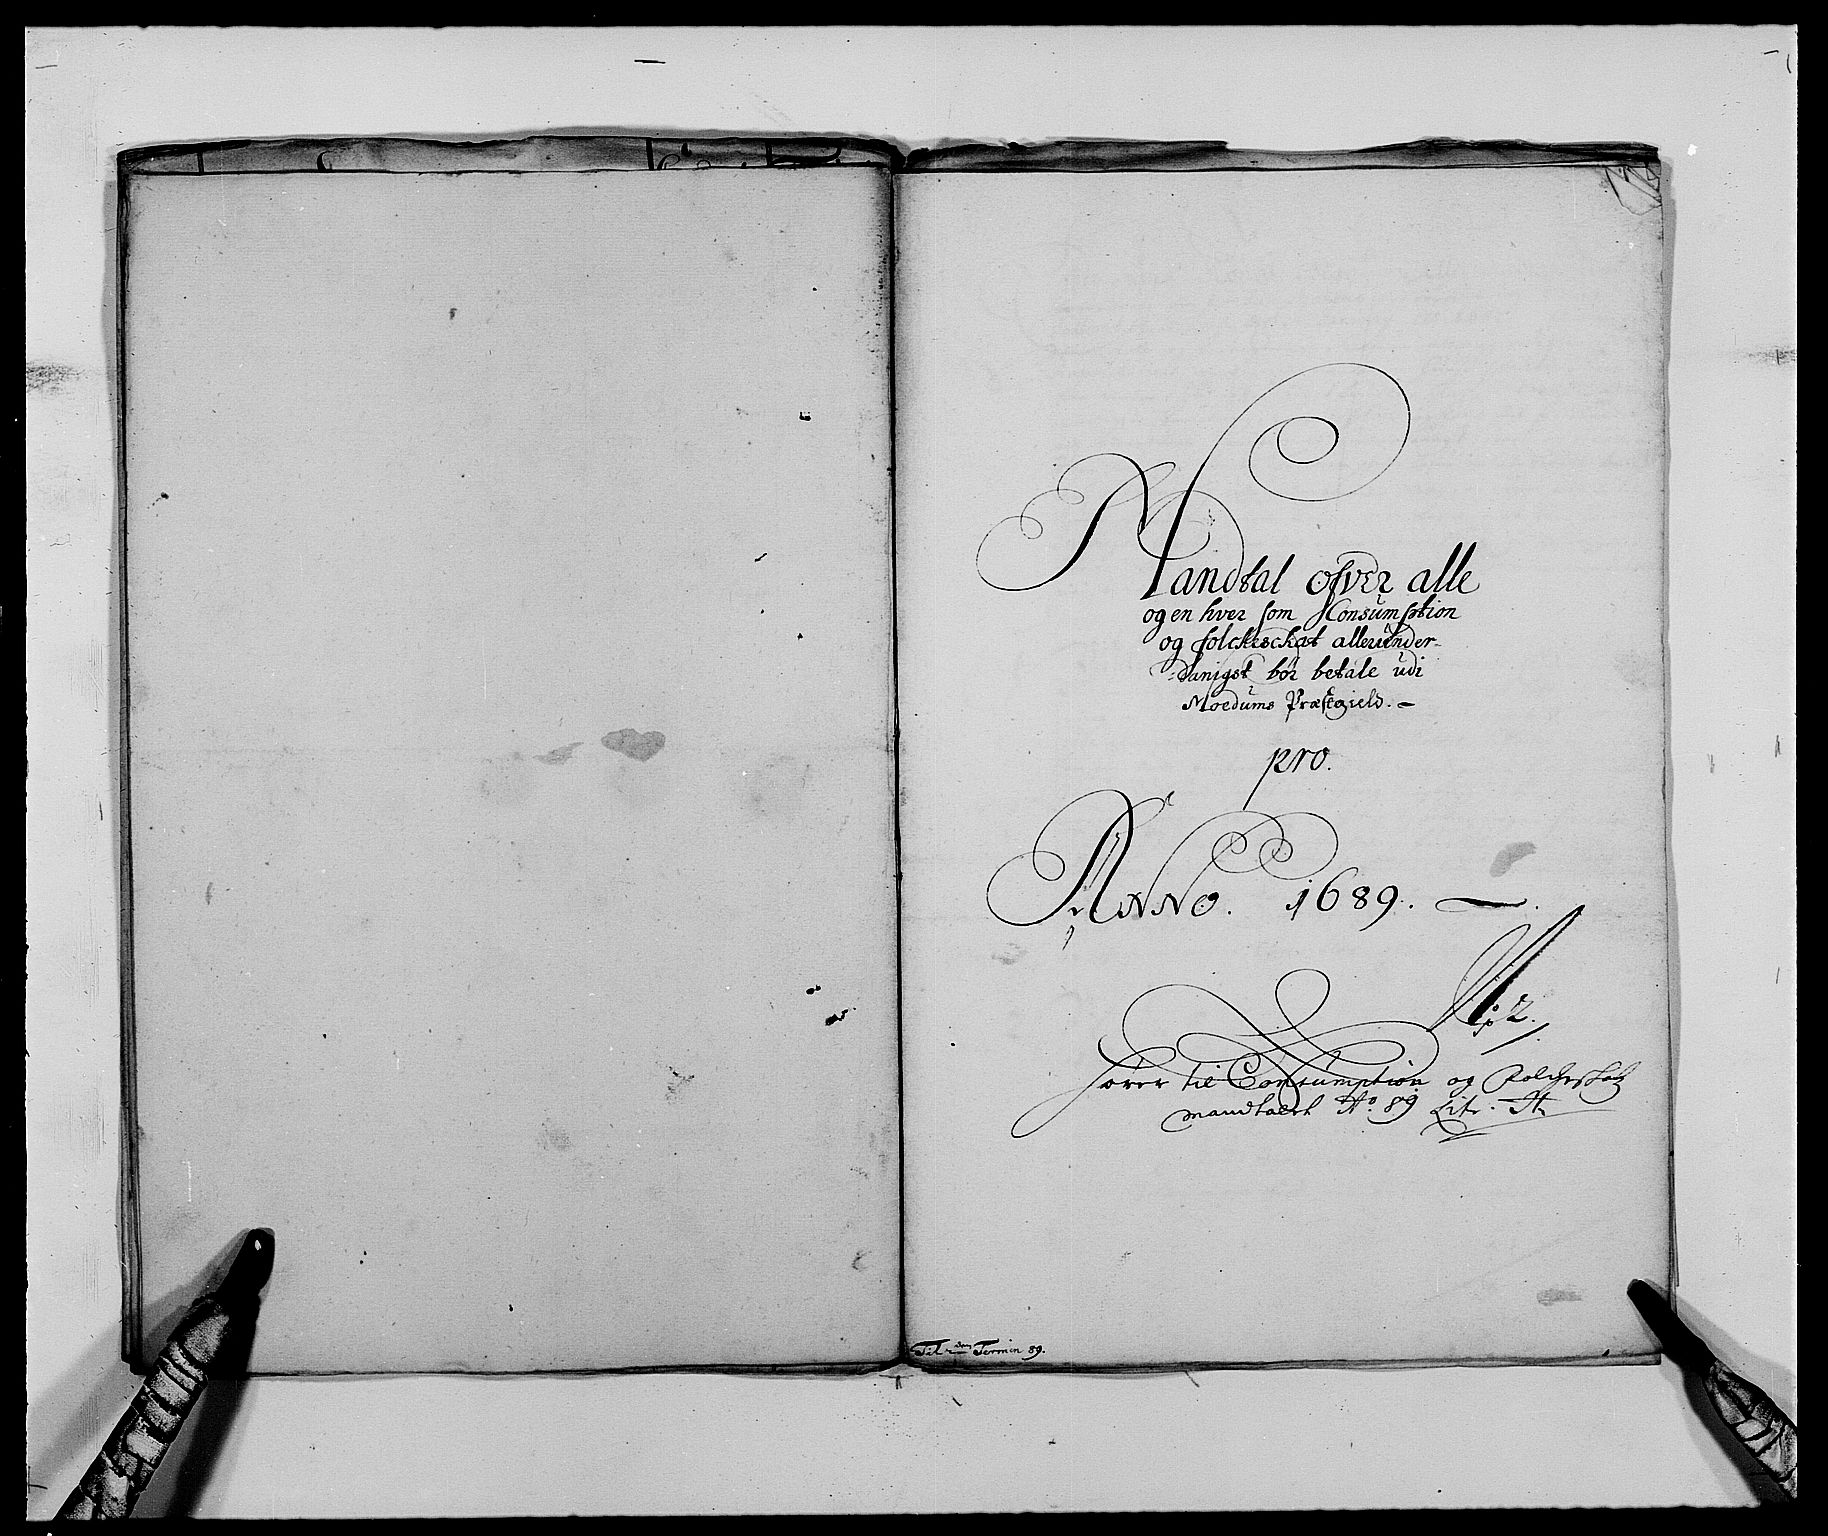 Mandtal ofver alle
og en hver som Consumption
og folckeschat allerunder-
-danigst bør betale udi
Moedums Præstegield. -
pro.
ANNO. 1689.
N: 2.
hører til Consumption og Folcheskatz
mandtalet Ao. 89 Litr. A
Til Termin 89.